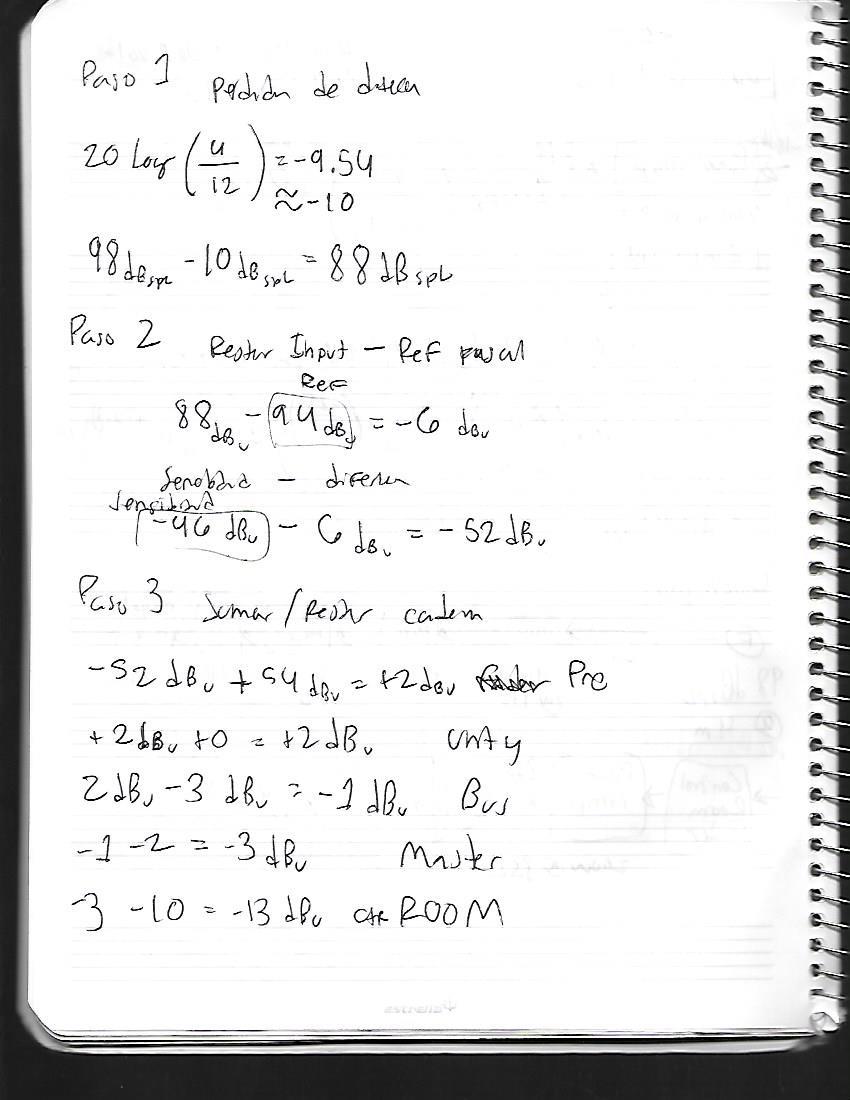 Paso 1 Perdida de
20 Log (4/12) = -9.54
≈ -10
98 dBspl - 10 dBspl = 88 dBspl
Paso 2 Restar Input - Ref
Ref
88 dBu - 94 dBu = -6 dBu
-
Sensibilidad
-46 dBu - 6 dBu = -52 dBu
Paso 3 Sumar / Restar cadena
-52 dBu + 54 dBu = +2 dBu Pre
+2 dBu + 0 = +2 dBu Unity
2 dBu - 3 dBu = -1 dBu Bus
-1 - 2 = -3 dBu Master
-3 - 10 = -13 dBu ROOM